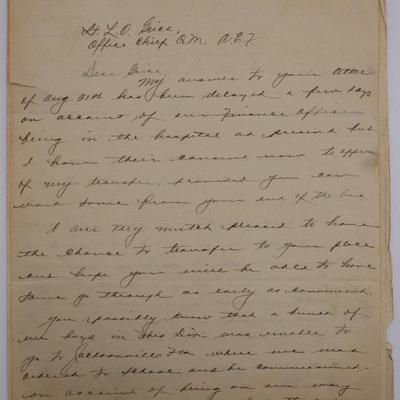 Lt. L.O. Grice,
Office Chief Q.M. A.E.F.
Dear Grice;
My answer to your letter
of Aug 31th has been delayed a few days
on account of our Finance Officer
being in the hospital at present but
I have their consent now to approve
of my transfer, provided you can
work same from your end of the line.
I am very much pleased to have
the chance to transfer to your place
and hope you will be able to have
same go through as early as convenient.
You possibly know that a bunch of
us boys in this Div. was unable to
go to Jacksonville Fla where we was
ordered to school and be commissioned
on account of being on our way